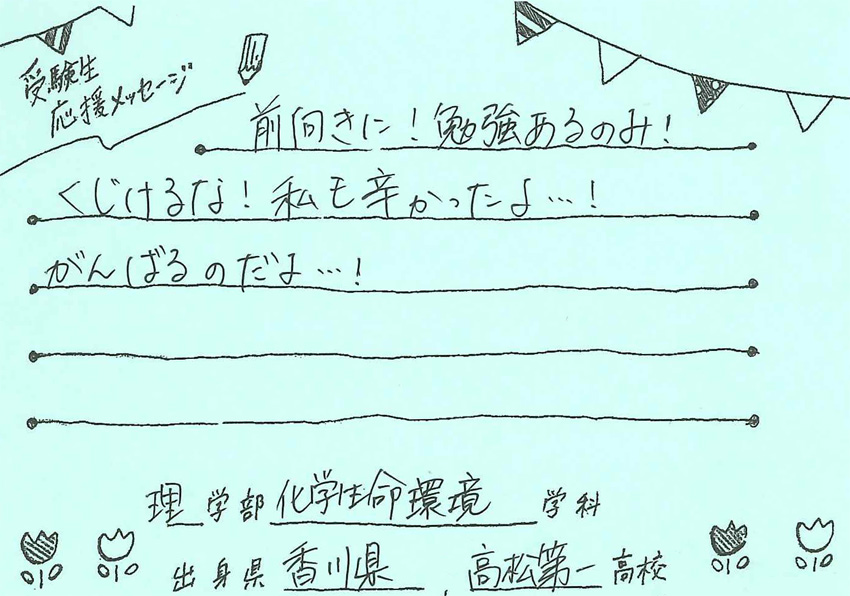 受験生
応援メッセージ
前向きに！勉強あるのみ！
くじけるな！私も辛かったよ…！
がんばるのだよ…！
理学部 化学生命環境 学科
出身県 香川県 , 高松第一 高校